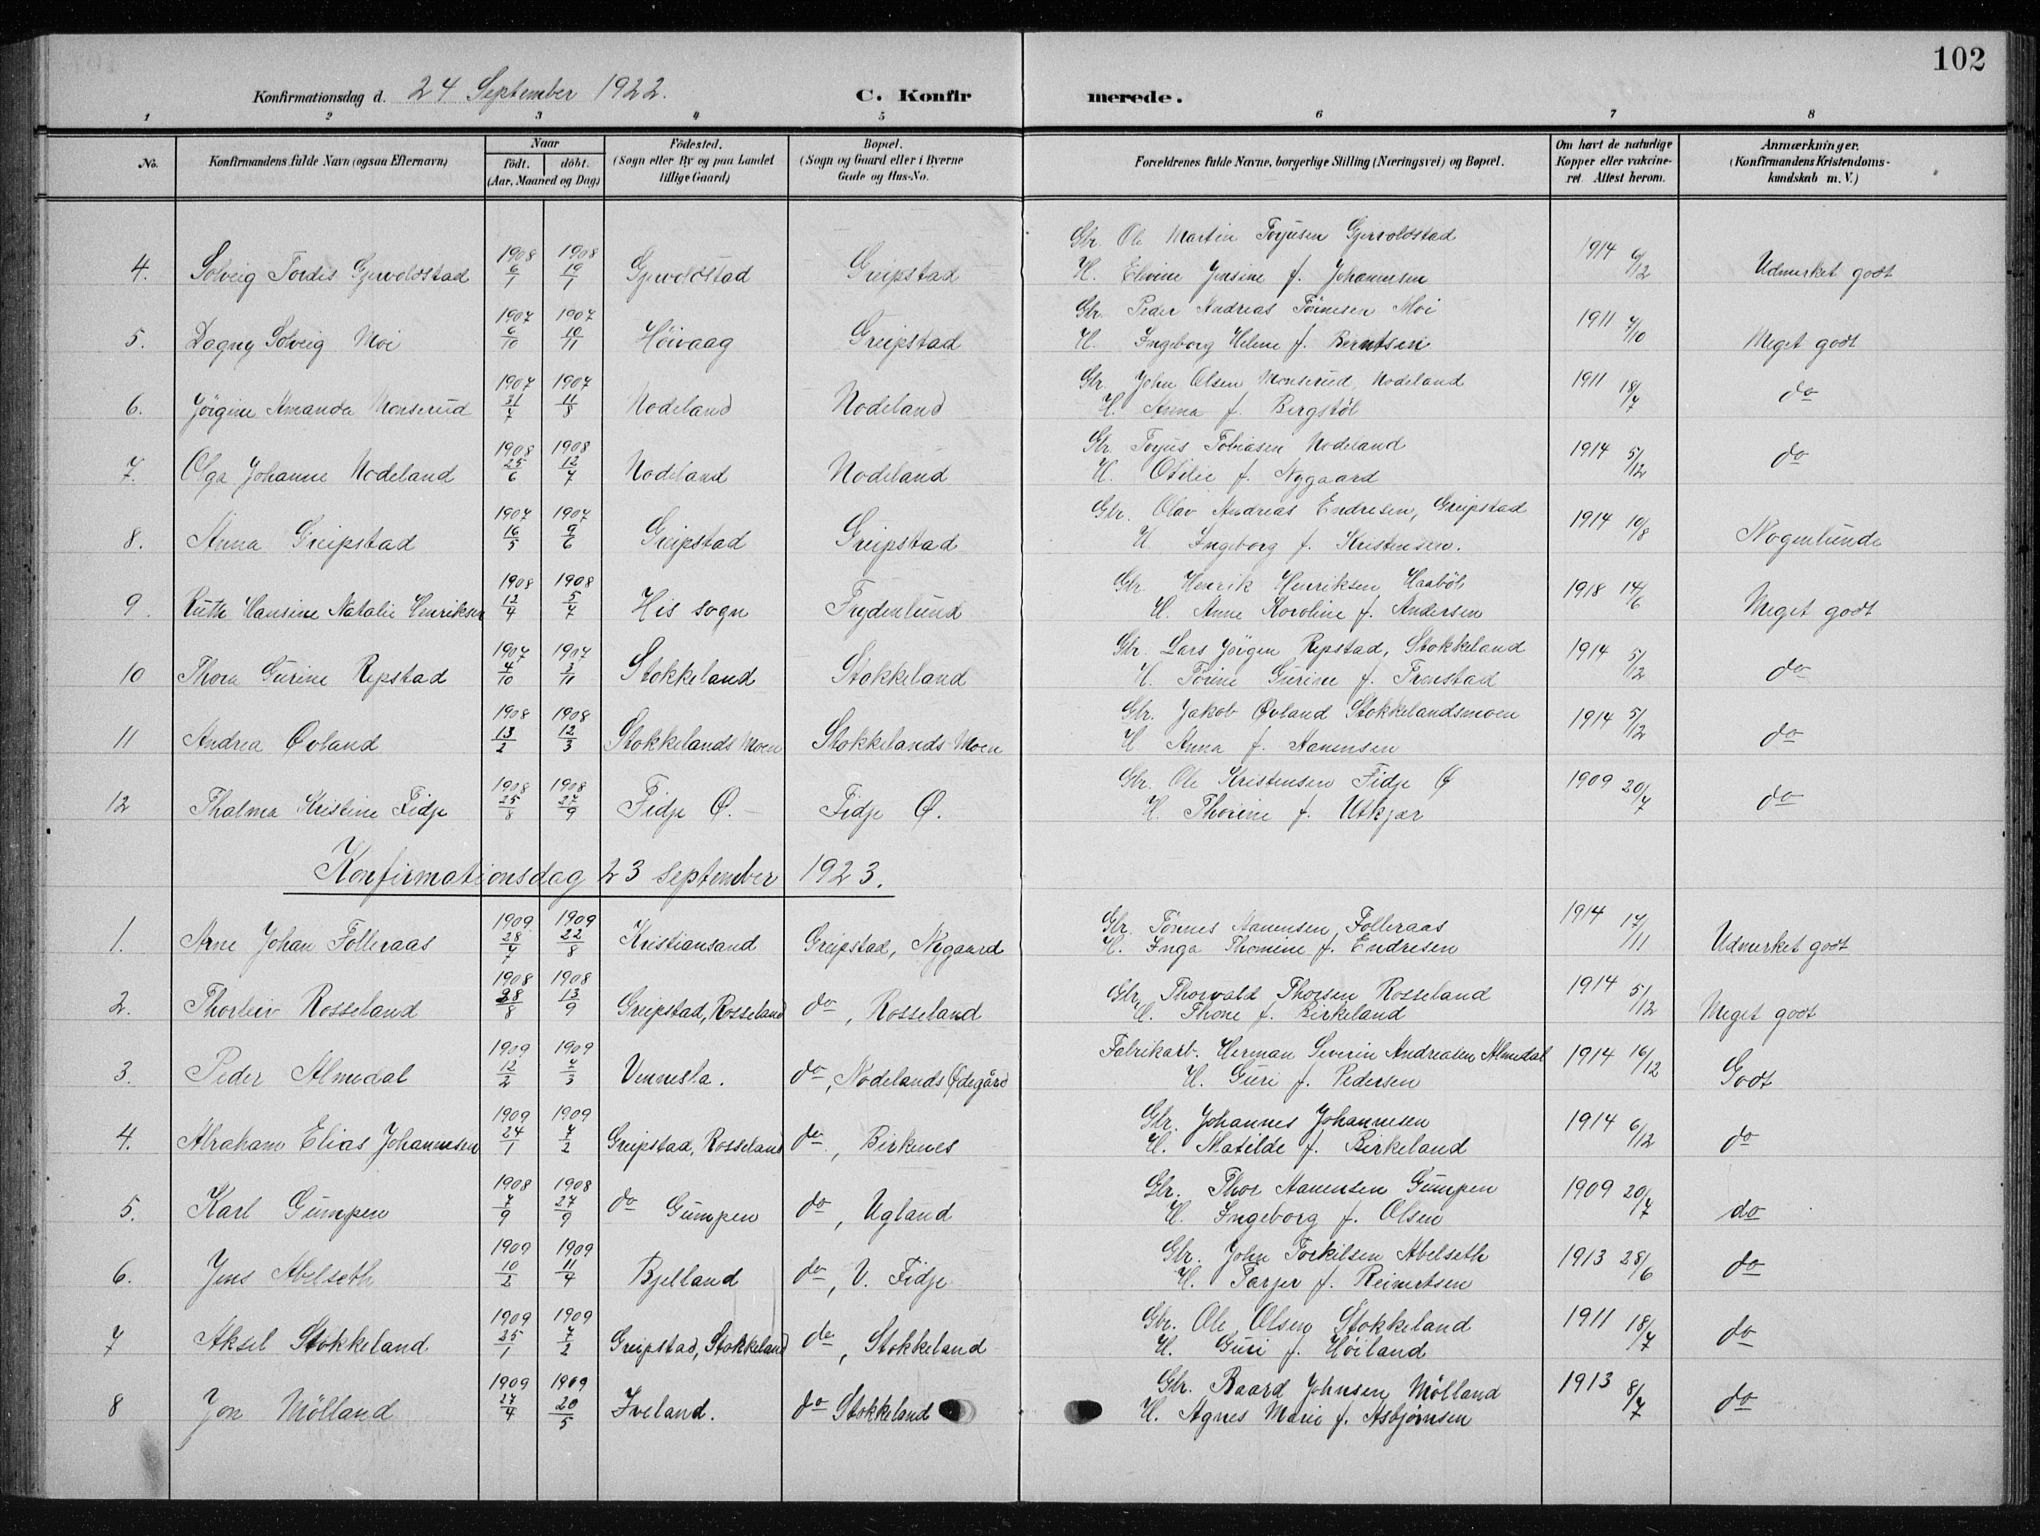 102
Konfirmationsdag d. 24 September 1922. C. Konfir merede.
1 2 3 4 5 6 7 8
No. Konfirmandens fulde Navn (ogsaa Efternavn) Naar födt. döbt. (Aar, Maaned og Dag) Födested. (Sogn eller By og paa Landet tillige Gaard) Bopæl. (Sogn og Gaard eller i Byerne Gade og Hus-No. Forældrenes fulde Navne, borgerlige Stilling (Næringsvei) og Bopæl. Om havt de naturlige Kopper eller vakcineret. Attest herom. Anmærkninger. (Konfirmandens Kristendomskundskab m. V.)
Gbr. Ole Martin Torjusen Gjervoldstad
4. Solveig Tordis Gjervoldstad 1908 6/1 1908 19/1 Gjervoldstad Greipstad H. Elvine Jensine f. Johannesen 1914 6/12 Udmerket godt
Gbr. Peder Andreas Tönnesen Moi
5. Dagny Solveig Moi 1907 6/10 1907 10/11 Höivaag Greipstad H. Ingeborg Helene f. Berntsen 1911 7/10 Meget godt
Gbr. John Olsen Monserud, Nodeland
6. Jörgine Amanda Monserud 1907 31/7 1907 11/8 Nodeland Nodeland H. Anna f. Bergstöl 1911 18/7 do
Gbr. Torjus Tobiasen Nodeland
7. Olga Johanne Nodeland 1908 25/6 1908 12/7 Nodeland Nodeland H. Otilie f. Nygaard 1914 5/12 do
Gbr. Olav Andreas Endresen, Greipstad
8. Anna Greipstad 1907 16/5 1907 9/6 Greipstad Greipstad H. Ingeborg f. Kristensen. 1914 10/8 Nogenlunde
Gbr. Henrik Henriksen, Haaböl
9. Ruth Hansine Natalie Henriksen 1908 12/4 1908 5/7 His sogn Frydenlund H. Anne Karoline f. Andersen 1918 14/6 Meget godt
Gbr. Lars Jörgen Repstad, Stokkeland
10 Thora Gurine Repstad 1907 4/10 1907 3/11 Stokkeland Stokkeland H. Torine Gurine f. Tronstad 1914 5/12 do
Gbr. Jakob Øvland Stokkelandsmoen
11 Andrea Øvland 1908 13/2 1908 12/3 Stokkelands Moen Stokkelands Moen H. Anna f. Aanensen 1914 5/12 do
Gbr. Ole Kristensen Fidje Ø
12 Thalma Kristine Fidje 1908 25/8 1908 27/9 Fidje Ø. Fidje Ø. H. Thorine f. Utkjær 1909 20/7 do
Konfirmationsdag 23 september 1923.
Gbr. Tönnes Aanensen, Folleraas
1. Arne Johan Folleraas 1909 28/7 1909 22/8 Kristiansand Greipstad, Nygaard H. Inga Thomine f. Endresen 1914 17/11 Udmerket godt
Gbr. Thorvald Thorsen Rosseland
2. Thorleiv Rosseland 1908 28/8 1908 13/9 Greipstad, Rosseland do, Rosseland H. Thone f. Birkeland 1914 5/12 Meget godt
Fabrikarb. Herman Severin Andreasen Almedal
3. Peder Almedal 1909 12/2 1909 7/3 Vennesla. do, Nodelands Ødegård H. Guri f. Pedersen 1914 16/12 Godt
Gbr. Johannes Johannesen
4. Abraham Elias Johannesen 1909 24/1 1909 7/2 Greipstad, Rosseland do, Birkenes H. Matilde f. Birkeland 1914 6/12 do
Gbr. Thor Aanensen Gumpen
5. Karl Gumpen 1908 7/9 1908 27/9 do Gumpen do, Ugland H. Ingeborg f. Olsen 1909 20/7 do
Gbr. John Torkilsen Abelseth
6. Jens Abelseth 1909 10/2 1909 11/4 Bjelland do, V. Fidje H. Tarjer f. Reinertsen 1913 28/6 do
Gbr. Ole Olsen Stokkeland
7 Aksel Stokkeland 1909 25/1 1909 7/2 Greipstad, Stokkeland do, Stokkeland H. Guri f. Höiland 1911 18/7 do
Gbr. Baard Johnsen Mölland
8 Jon Mölland 1909 27/4 1909 20/5 Iveland. do Stokkeland H. Agnes Marie f. Asbjörnsen 1913 8/7 do